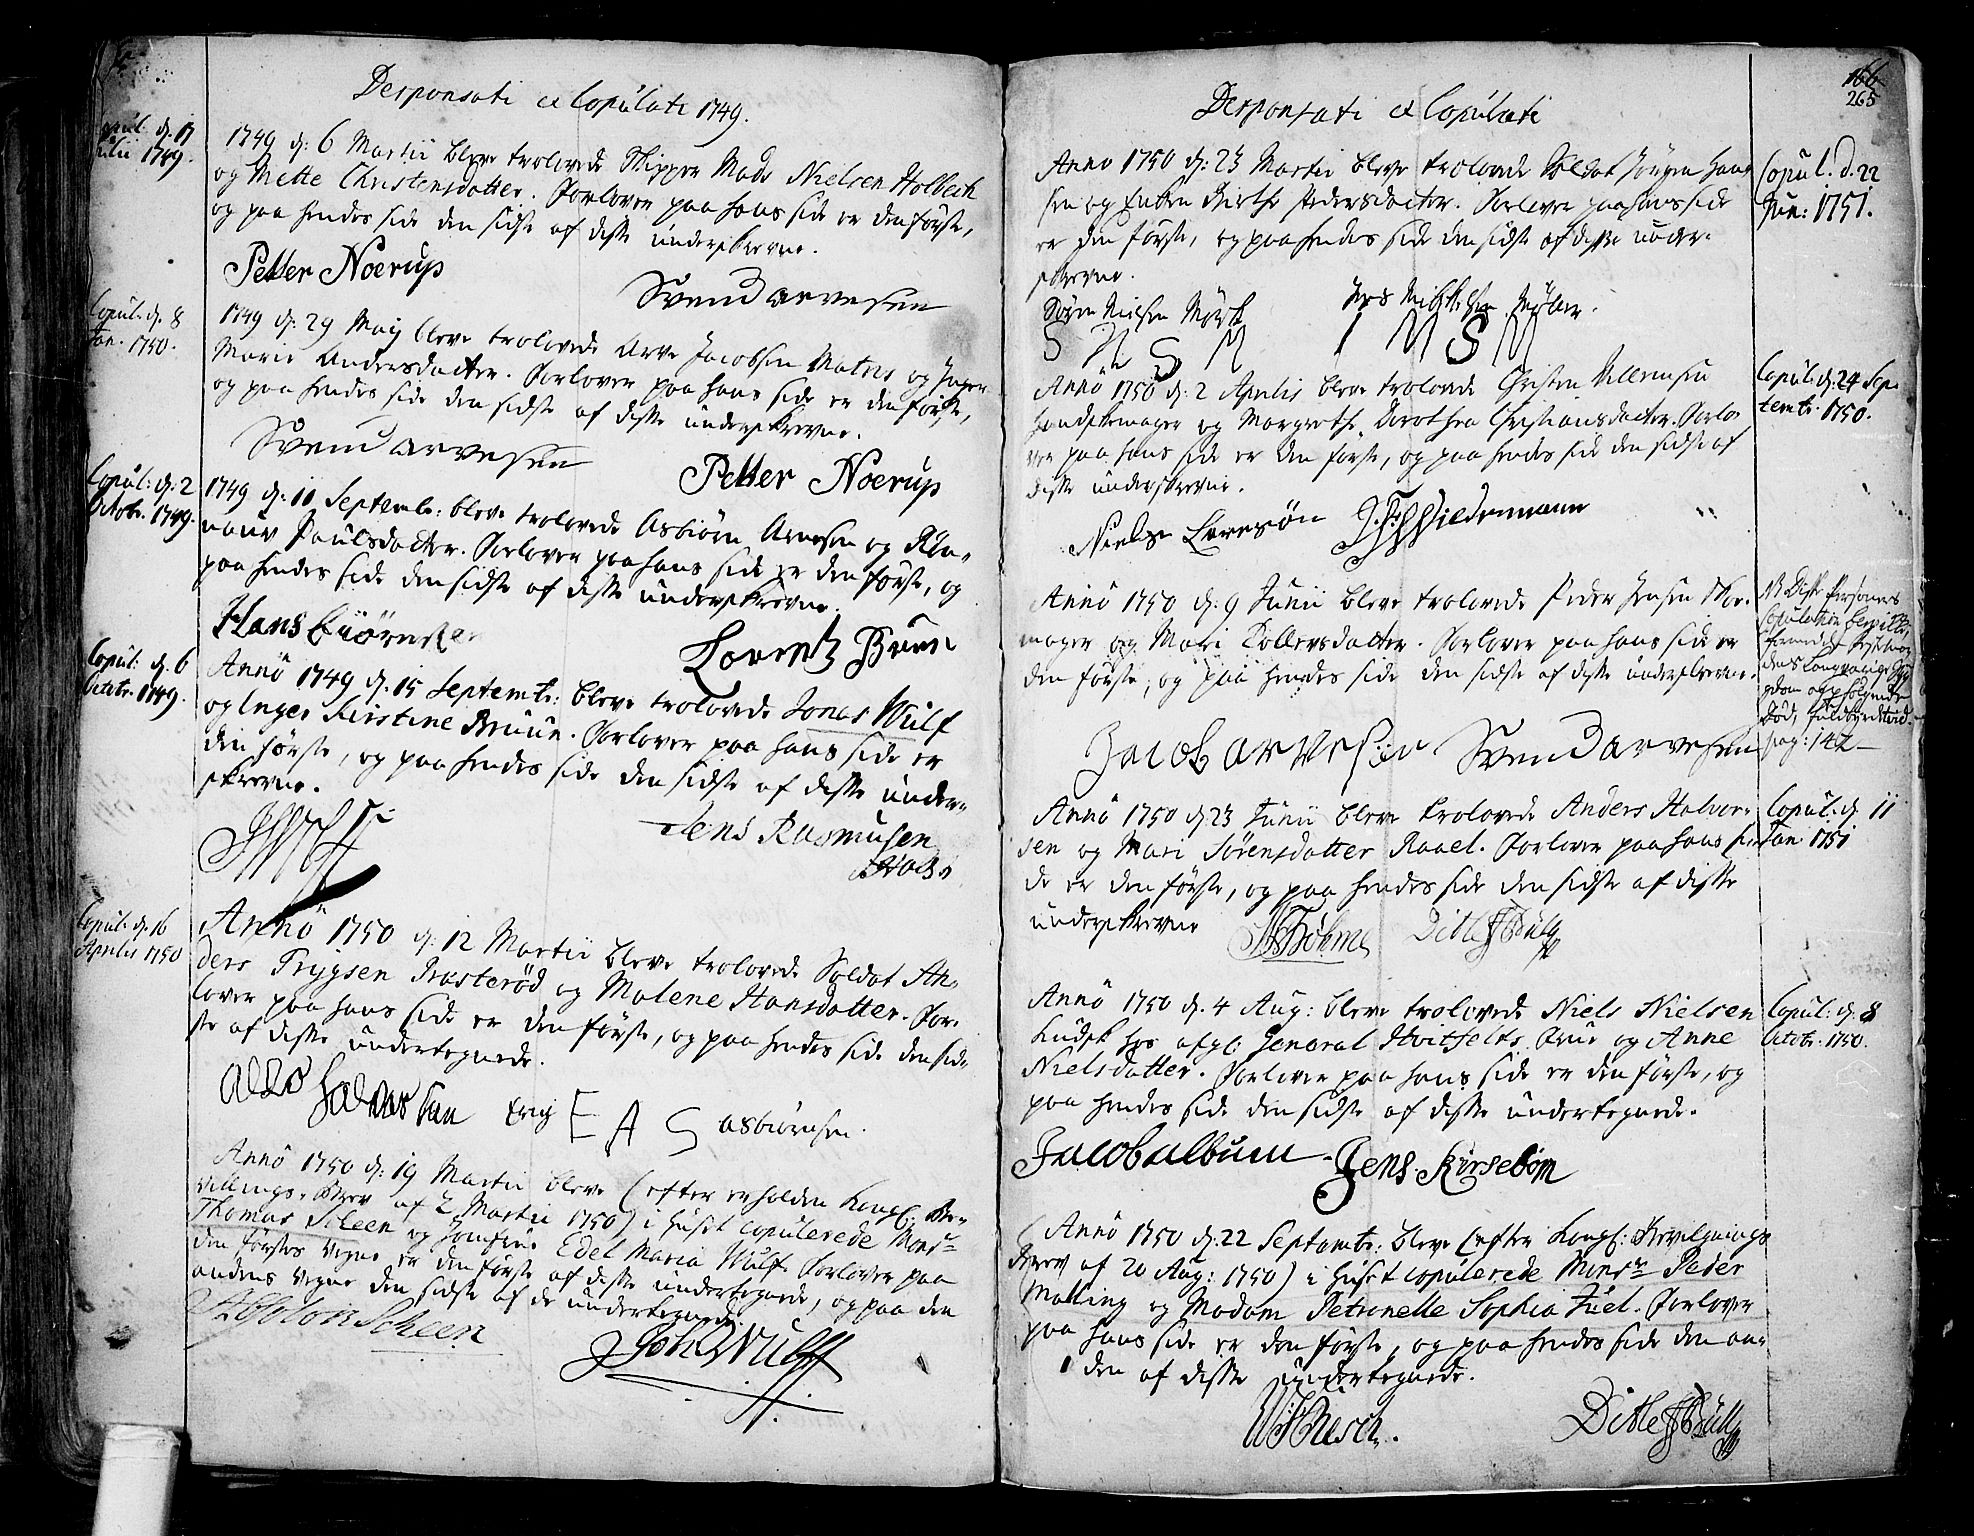 Desponsati et Copulati 1749.
Copul: d. 17
Julii 1749.
1749 d: 6 Martii bleve trolovede Skipper Mads Nielsen Holbech
og Mette Christensdatter. Forlover paa hans side er den første,
og paa hendes side den sidste af disse underskrevne.
Petter Noerup
Svend arvesen
Copul: d. 8
Jan. 1750.
1749 d: 29 Maij bleve trolovede Arve Jacobsen Matros og Inger
Marie Andersdatter. Forlover paa hans side er den første,
og paa hendes side den sidste af disse underskrevne.
Svend arvesen
Petter Noerup
Copul: d. 2
Octobr. 1749.
1749 d. 11 Septembr: bleve trolovede Asbiørn Arnesen og Rön-
nauv Paulsdatter. Forlover paa hans side er den første, og
paa hendes side den sidste af disse underskrevne.
Hans Biörnsen
Lorentz Bruun
Copul: d. 6
Octobr. 1749.
Anno 1749 d. 15 Septembr: bleve trolovede Jonas Wulf
og Inger Kirstine Bruun. Forlover paa hans side er
den første, og paa hendes side den sidste af disse under-
skrevne.
JWulff
Jens Rasmusen
Copul. d. 16
Aprilis 1750
Anno 1750 d: 12 Martii bleve trolovede Soldat An-
ders Trygsen Prasterød og Malene Hansdatter. For-
lover paa hans side er den første, og paa hendes side den sid-
ste af disse undertegnede.
Halvorsen Erig E A S asbiørnsen.
Anno 1750 d: 19 Martii bleve (efter erholden Kongl: Be-
villings-Brev af 2 Martii 1750) i Huset copulerede Monsr
Thomas Scheen og Jomfrue Edel Maria Wulf. Forlover paa
den førstes Vegne er den første af disse undertegnede, og paa den
andens Vegne den sidste af de undertegnede.
Absolon Scheen
Joh Wulff
166
265
Desponsati et Copulati
Anno 1750 d: 23 Martii bleve trolovede Soldat Jørgen Han-
sen og Enken Birthe Pedersdatter. Forlover paa hans side
er den første, og paa hendes side den sidste af disse under-
skrevne.
Copul. d. 22
Jun: 1751.
Søren Nielsen Mørk Jens Michelsen Møller.
S N S M I M S M
Anno 1750 d: 2 Aprilis bleve trolovede Christen Villemsen
Handskemager og Margrethe Dorothea Christiansdatter. Forlo-
ver paa hans side er den første, og paa hendes side den sidste af
disse underskrevne.
Copul: d: 24 Sep-
tembr. 1750.
Niels Levesøn Hildemann
Anno 1750 d: 9 Junii bleve trolovede Peder Jensen Skoe-
mager og Mari Tollevsdatter. Forlover paa hans side er
den første, og paa hendes side den sidste af disse underskrevne.
NB Disse Personers
Copulation
dens langvarige Syg-
dom og paafølgende
Død,
pag: 142
Jacob arvesen Svend arvesen
Anno 1750 d: 23 Junii bleve trolovede Anders Halvor-
sen og Mari Sørensdatter Raael. Forlover paa hans si-
de er den første, og paa hendes side den sidste af disse
underskrevne
Copul: d. 11
Jan: 1751
Bøhme Ditlef Bülg
Anno 1750 d. 4 Aug: bleve trolovede Niels Nielsen
Kudsk hos afgl: General Hvitfelts Frue og Anne
Nielsdatter. Forlover paa hans side er den første, og
paa hendes side den sidste af disse undertegnede.
Copul: d: 8
Octobr. 1750.
Jacob album Jens Kirsebøm
Anno 1750 d: 22 Septembr: bleve (efter Kongl: Bevilgnings
Brev af 20 Aug: 1750) i Huset copulerede Monsr Peder
Malling og Madam Petronelle Sophia Juel. Forlover
paa hans side er den første, og paa hendes side den an-
den af disse undertegnede.
Ditlef Bülg